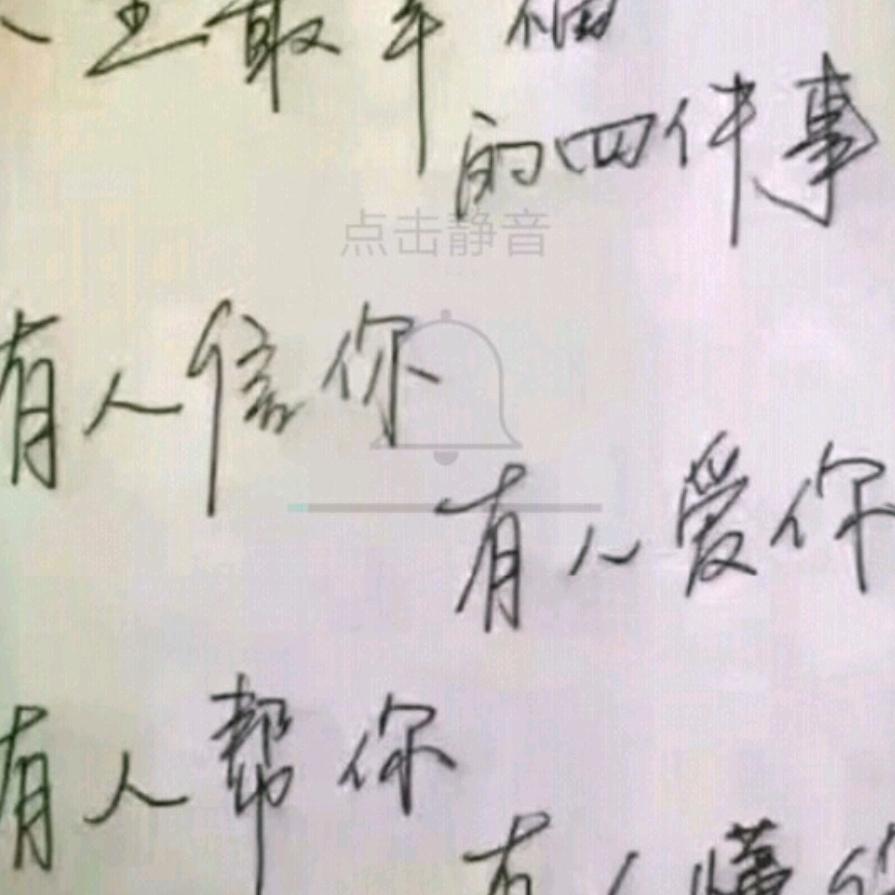 人生最幸福
的四件事
点击静音
有人信你
有人爱你
有人帮你
有人懂你